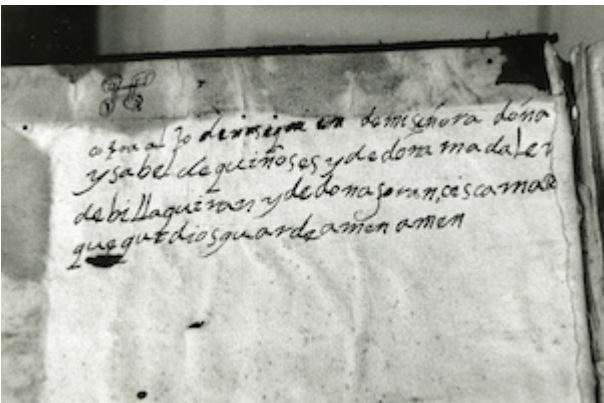 demiseñora dóna
ysabel dequiñoses y dedona madalen
debillaquiran y dedona fran,cisca mar
que que dios guarde amen amen